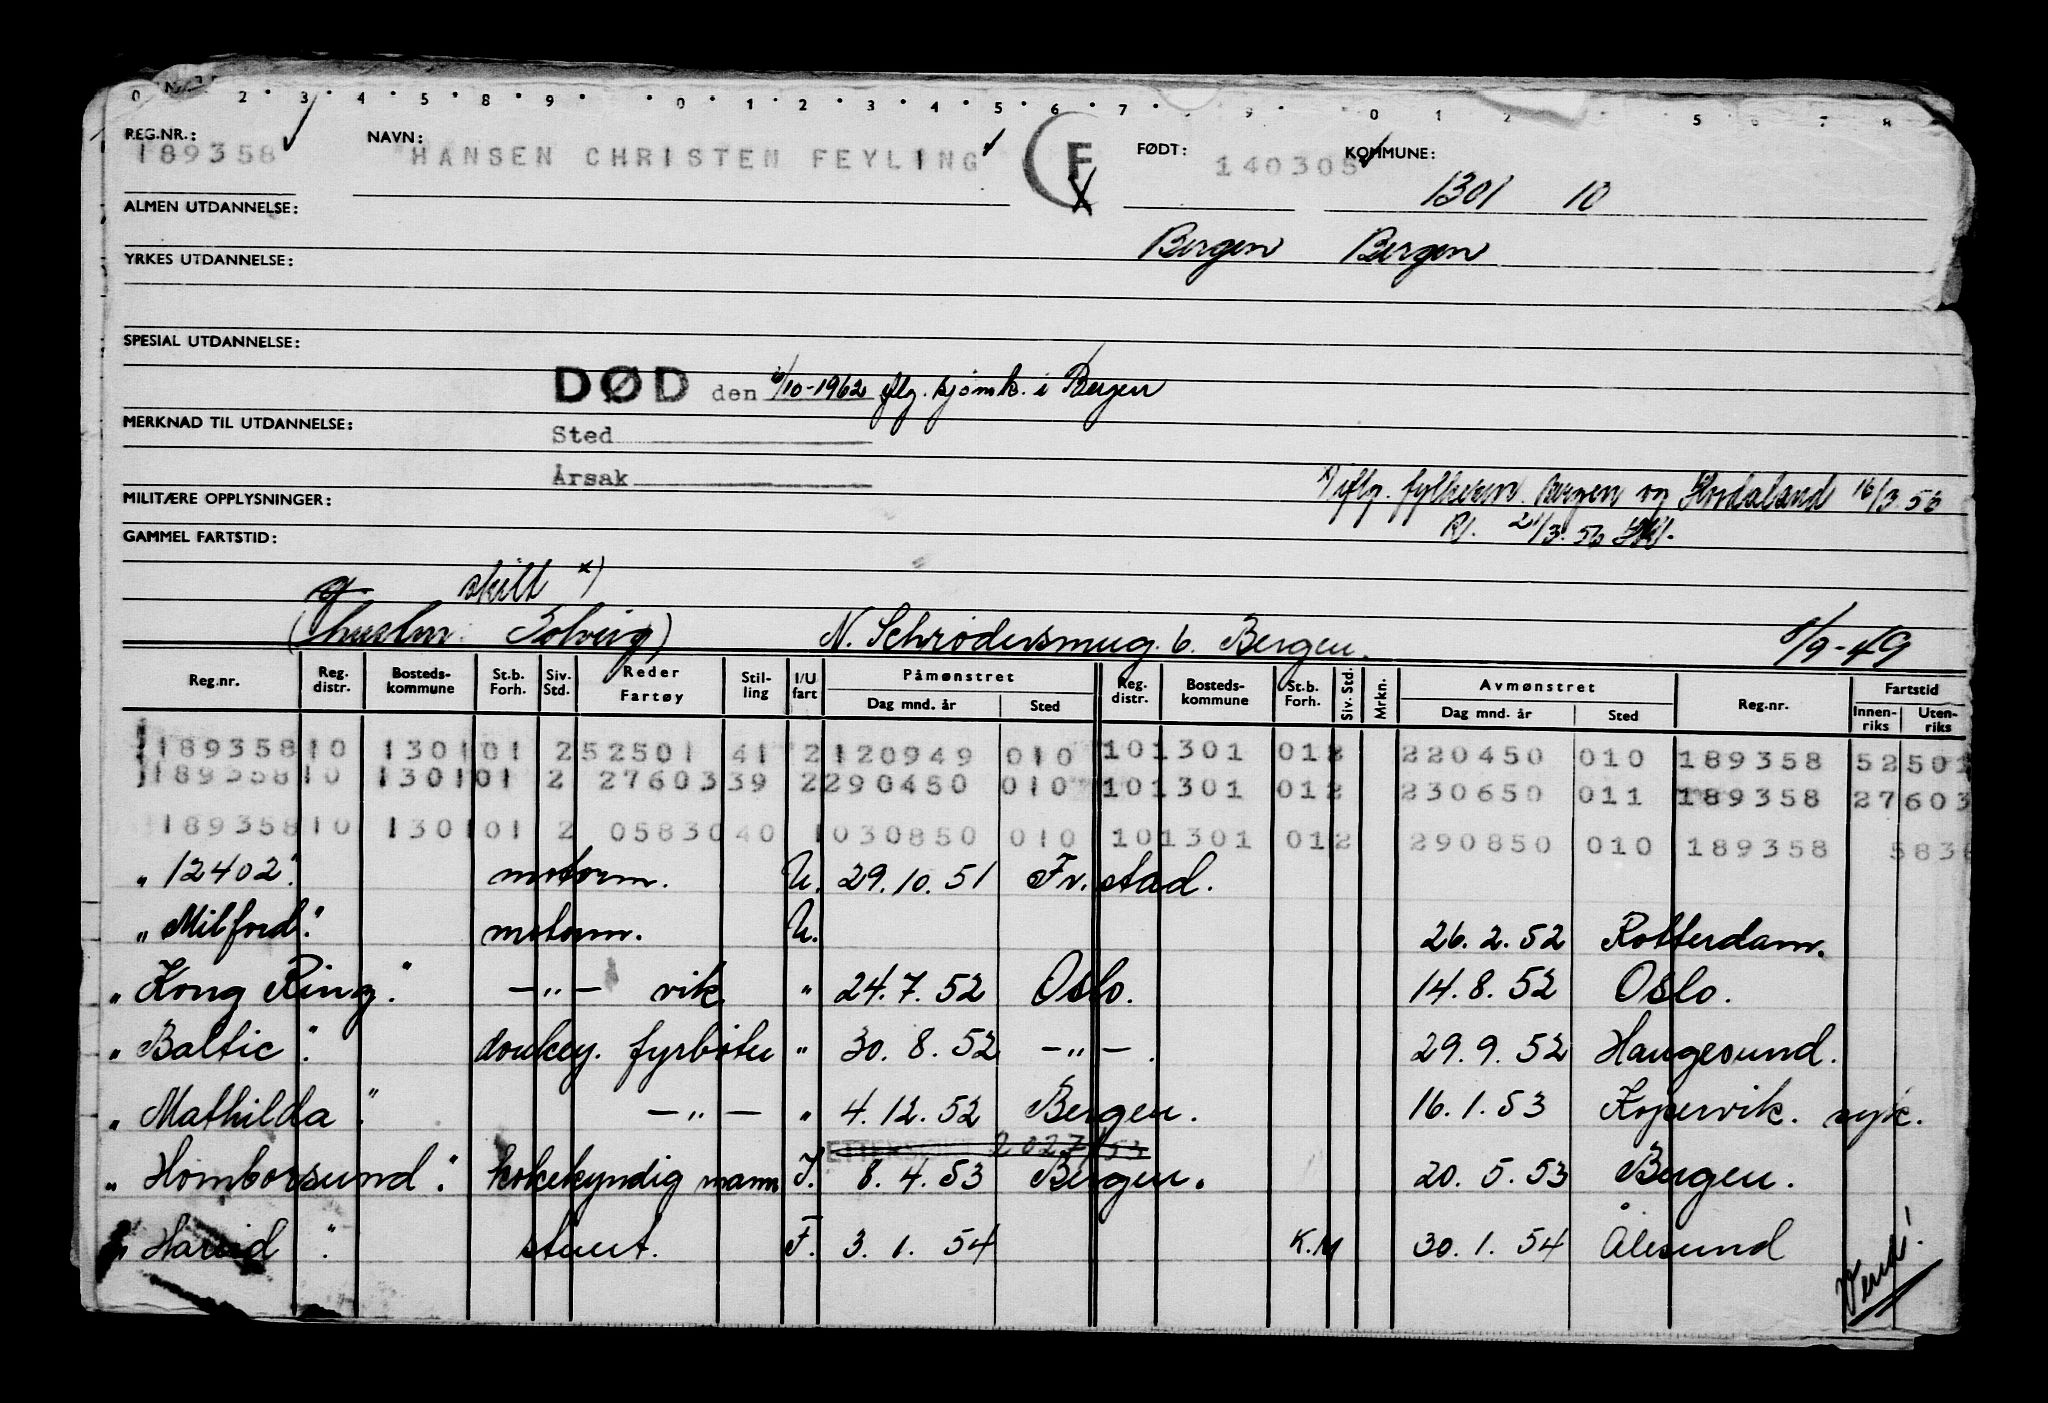 0 2 · 3 · 4 · 5 · 8 · 9 · · 0 · 1 · 2 · 3 · 4 · 5 · 6 · 7 · · 9 · 0 1 2 5 6 7 8
REG.NR.: NAVN: FØDT: KOMMUNE:
189358 HANSEN CHRISTEN FEYLING F 140305
1301 10
ALMEN UTDANNELSE:
Bergen Bergen
YRKES UTDANNELSE:
SPESIAL UTDANNELSE:
DØD den 6/10-1962 iflg. sjømk. i Bergen
MERKNAD TIL UTDANNELSE:
Sted
Årsak
MILITÆRE OPPLYSNINGER: x) iflg. fylkesm. Bergen og Hordaland 16/3.56
Rl. 21/3.56
GAMMEL FARTSTID:
g skilt x)
(hustru: Solveig) N. Schrødersmug. 6. Bergen. 8/9-49
Reg.nr. Reg. distr. Bosteds-kommune St.b. Forh. Siv. Std. Reder Fartøy Stil-ling I/U fart Påmønstret Reg. distr. Bosteds-kommune St.b. Forh. Siv. Std. Mrkn. Avmønstret Reg.nr. Fartstid
Dag mnd. år Sted Dag mnd. år Sted Innen-riks Uten-riks
189358 10 1301 01 2 52501 41 2 120949 010 10 1301 01 2 220450 010 189358 52501
189358 10 1301 01 2 27603 39 2 290450 010 10 1301 01 2 230650 011 189358 27603
189358 10 1301 01 2 05830 40 1 030850 010 10 1301 01 2 290850 010 189358 583
" 12402". motorm. U. 29.10.51 Fr.stad.
" Milford". motorm. U. 26.2.52 Rotterdam.
" Kong Ring". —"— vik. " 24.7.52 Oslo. 14.8.52 Oslo.
" Baltic". donkey. fyrbøter " 30.8.52 —"—. 29.9.52 Haugesund.
" Mathilda" —"— " 4.12.52 Bergen. 16.1.53 Kopervik. syk.
ETTERSØKT 2027/53
" Homborsund". kokekyndig mann I. 8.4.53 Bergen. 20.5.53 Bergen.
" Hareid". stuert. F. 3.1.54 K.M 30.1.54 Ålesund
Vend!